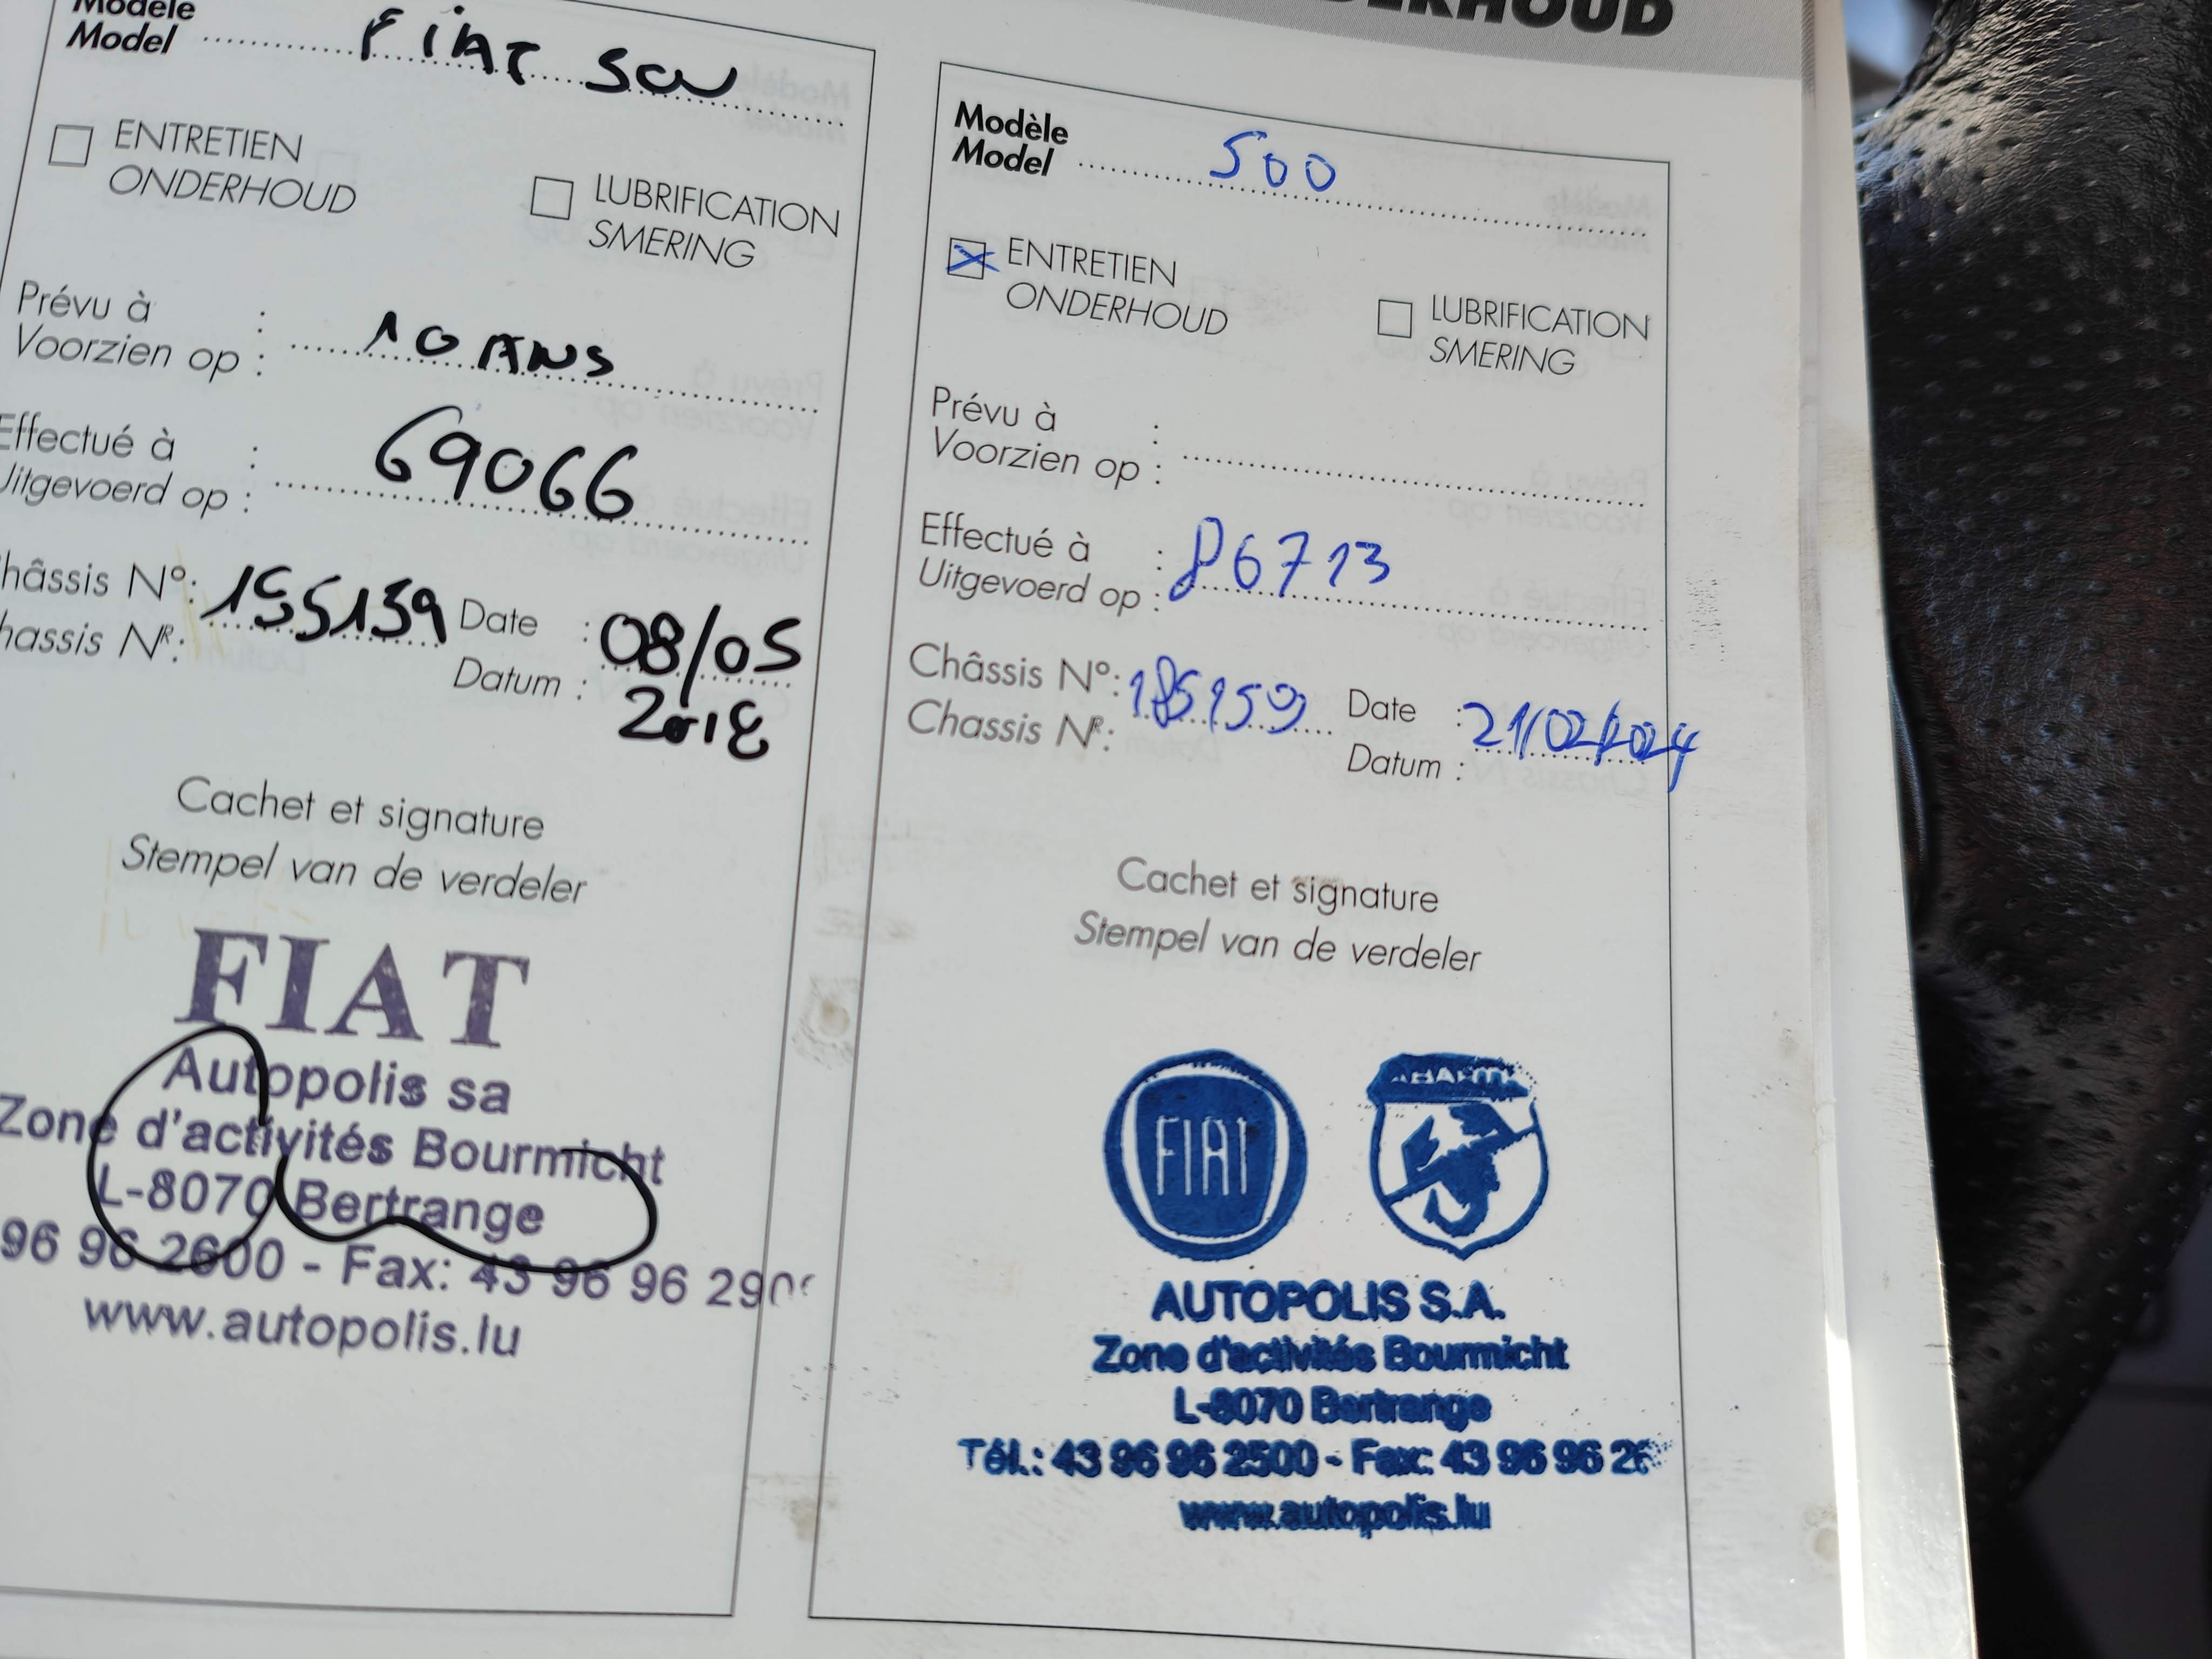 DERHOUD
Modèle
Model ........ FIAT 500
ENTRETIEN
ONDERHOUD
LUBRIFICATION
SMERING
Prévu à :
Voorzien op : 10 ANS
Effectué à :
Uitgevoerd op : 69066
Châssis N°: 155159 Date : 08/05
Chassis NR: Datum : 2018
Cachet et signature
Stempel van de verdeler
FIAT
Autopolis sa
Zone d'activités Bourmicht
L-8070 Bertrange
96 96 2600 - Fax: 43 96 96 290
www.autopolis.lu
Modèle
Model ........ 500
ENTRETIEN
ONDERHOUD
LUBRIFICATION
SMERING
Prévu à :
Voorzien op :
Effectué à : 86713
Uitgevoerd op :
Châssis N°: 185159 Date : 21/02/2024
Chassis NR: Datum :
Cachet et signature
Stempel van de verdeler
FIAT
ABARTH
AUTOPOLIS S.A.
Zone d'activités Bourmicht
L-8070 Bertrange
Tél.: 43 96 96 2500 - Fax: 43 96 96 26
www.autopolis.lu